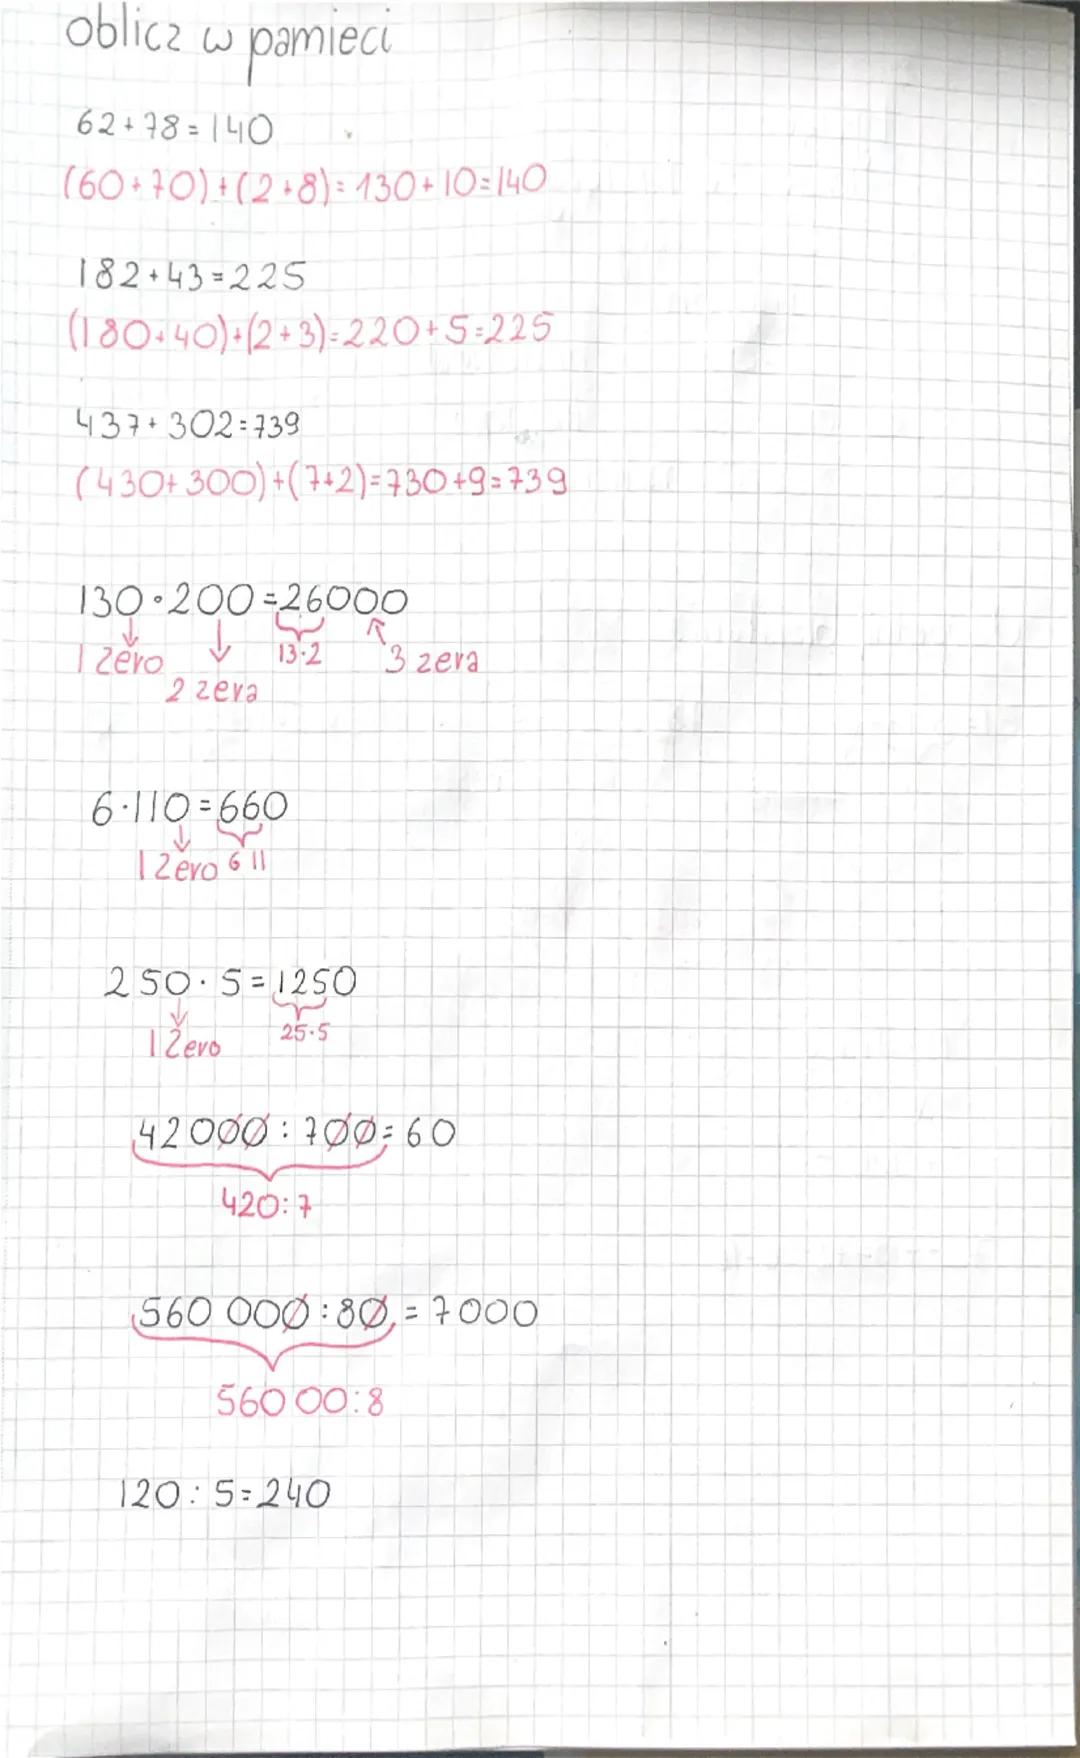 oblicz w pamieci
62+78=140
(60+70)+(2+8)=130+10=140
182+43=225
(180+40)+(2+3)=220+5=225
437+302=739
(430+300)+(7+2)=730+9=739
130·200=26000
↓ ↓ 13·2 ↖
1 zero 3 zera
2 zera
6·110=660
↓
1 zero 6 11
250·5=1250
↓ 25·5
1 zero
42000:700=60
420:7
560 000:80=7000
560 00:8
120:5=240